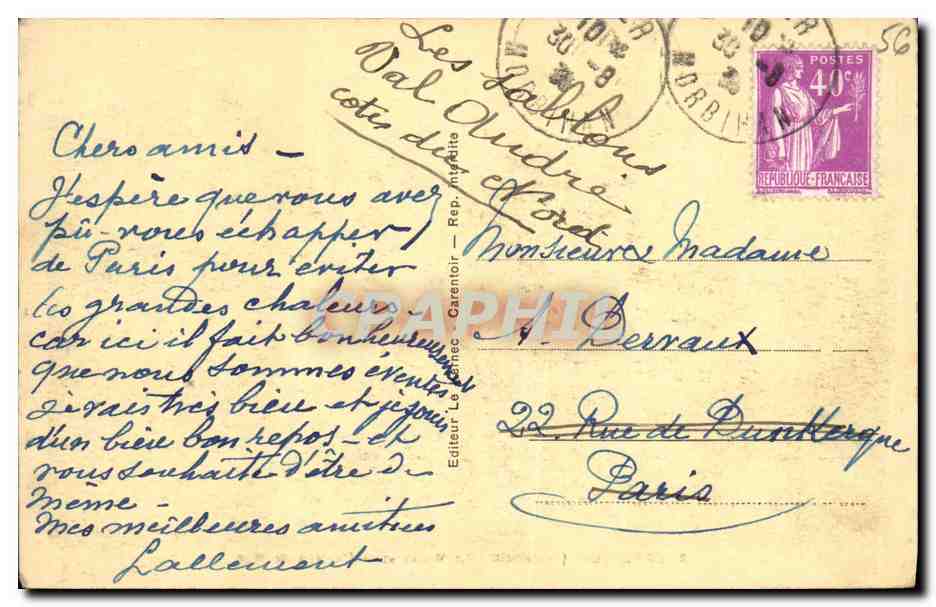 56
POSTES
40c
RÉPUBLIQUE-FRANÇAISE
MORBIHAN
30 -8
MORBIHAN
30 -8
Les Sablons
Val André
cotes du Nord
Chers amis -
J'espère que vous avez
pû - vous échapper
de Paris pour eviter
les grandes chaleurs -
car ici il fait bon heureusement
que nous sommes éventés
je vais très bien et je jouis
d'un bien bon repos - et
vous souhaite d'être de
même -
Mes meilleures amitiés
Lallement
Editeur Le Carentoir — Rep. Interdite
Monsieur & Madame
A. Dervaux
22. Rue de Dunkerque
Paris
CPAPHIL